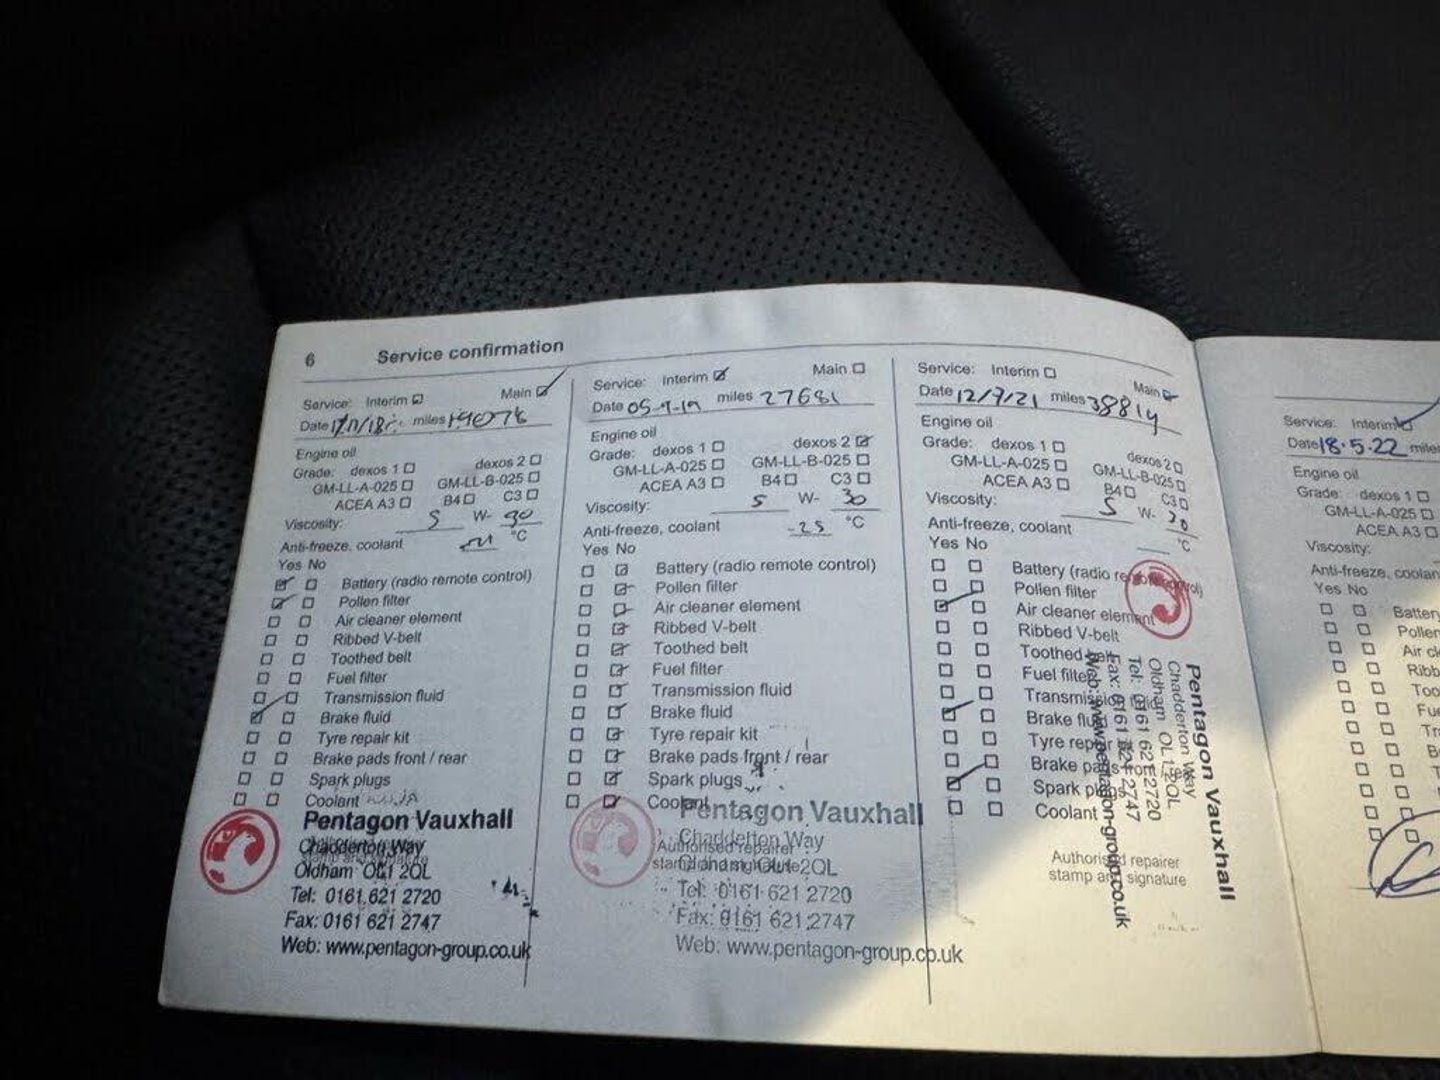 6 Service confirmation
Service: Interim Main
Date miles 19078
Engine oil
Grade: dexos 1 dexos 2
GM-LL-A-025 GM-LL-B-025
ACEA A3 B4 C3
Viscosity: 5 W- 30
Anti-freeze, coolant °C
Yes No
Battery (radio remote control)
Pollen filter
Air cleaner element
Ribbed V-belt
Toothed belt
Fuel filter
Transmission fluid
Brake fluid
Tyre repair kit
Brake pads front / rear
Spark plugs
Coolant
Pentagon Vauxhall
Chadderton Way
Oldham OL1 2QL
Tel: 0161 621 2720
Fax: 0161 621 2747
Web: www.pentagon-group.co.uk
Service: Interim Main
Date 05-9-19 miles 27681
Engine oil
Grade: dexos 1 dexos 2
GM-LL-A-025 GM-LL-B-025
ACEA A3 B4 C3
Viscosity: 5 W- 30
Anti-freeze, coolant -25 °C
Yes No
Battery (radio remote control)
Pollen filter
Air cleaner element
Ribbed V-belt
Toothed belt
Fuel filter
Transmission fluid
Brake fluid
Tyre repair kit
Brake pads front / rear
Spark plugs
Coolant
Pentagon Vauxhall
Chadderton Way
Authorised repairer
stamp and signature
Oldham OL1 2QL
Tel: 0161 621 2720
Fax: 0161 621 2747
Web: www.pentagon-group.co.uk
Service: Interim Main
Date 12/7/21 miles 38814
Engine oil
Grade: dexos 1 dexos 2
GM-LL-A-025 GM-LL-B-025
ACEA A3 B4 C3
Viscosity: 5 W- 30
Anti-freeze, coolant °C
Yes No
Battery (radio remote control)
Pollen filter
Air cleaner element
Ribbed V-belt
Toothed belt
Fuel filter
Transmission fluid
Brake fluid
Tyre repair kit
Brake pads front / rear
Spark plugs
Coolant
Authorised repairer
stamp and signature
Pentagon Vauxhall
Chadderton Way
Oldham OL1 2QL
Tel: 0161 621 2720
Fax: 0161 621 2747
Web: www.pentagon-group.co.uk
Service: Interim
Date 18.5.22 miles
Engine oil
Grade: dexos 1
GM-LL-A-025
ACEA A3
Viscosity:
Anti-freeze, coolan
Yes No
Batter
Pollen
Air cl
Ribb
Too
Fue
Tr
B
T